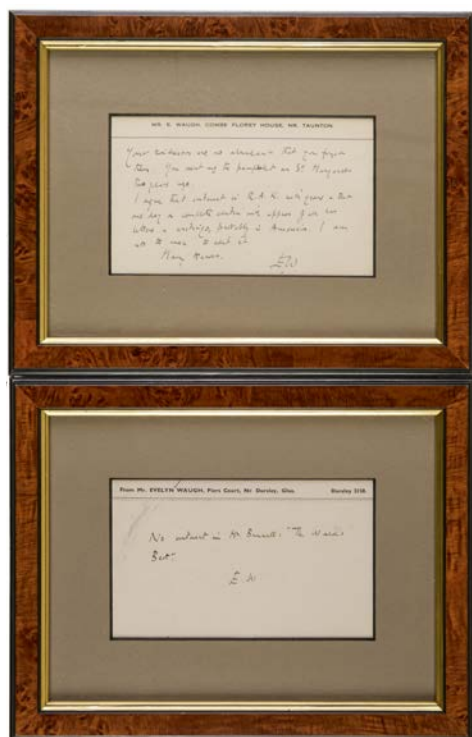 MR. E. WAUGH, COMBE FLOREY HOUSE, NR. TAUNTON.
Your kindnesses are so abundant that you forget
them. You sent me the pamphlet on St. Margaret
two years ago.
I agree that interest in R.A.K. will grow & that
one day a complete edition will appear of his
letters & writings, probably in America. I am
not the man to edit it.
EW
From Mr. EVELYN WAUGH, Piers Court, Nr. Dursley, Glos.
Dursley 2150
No interest in Mr Bennett's "The World's
Best"
E W